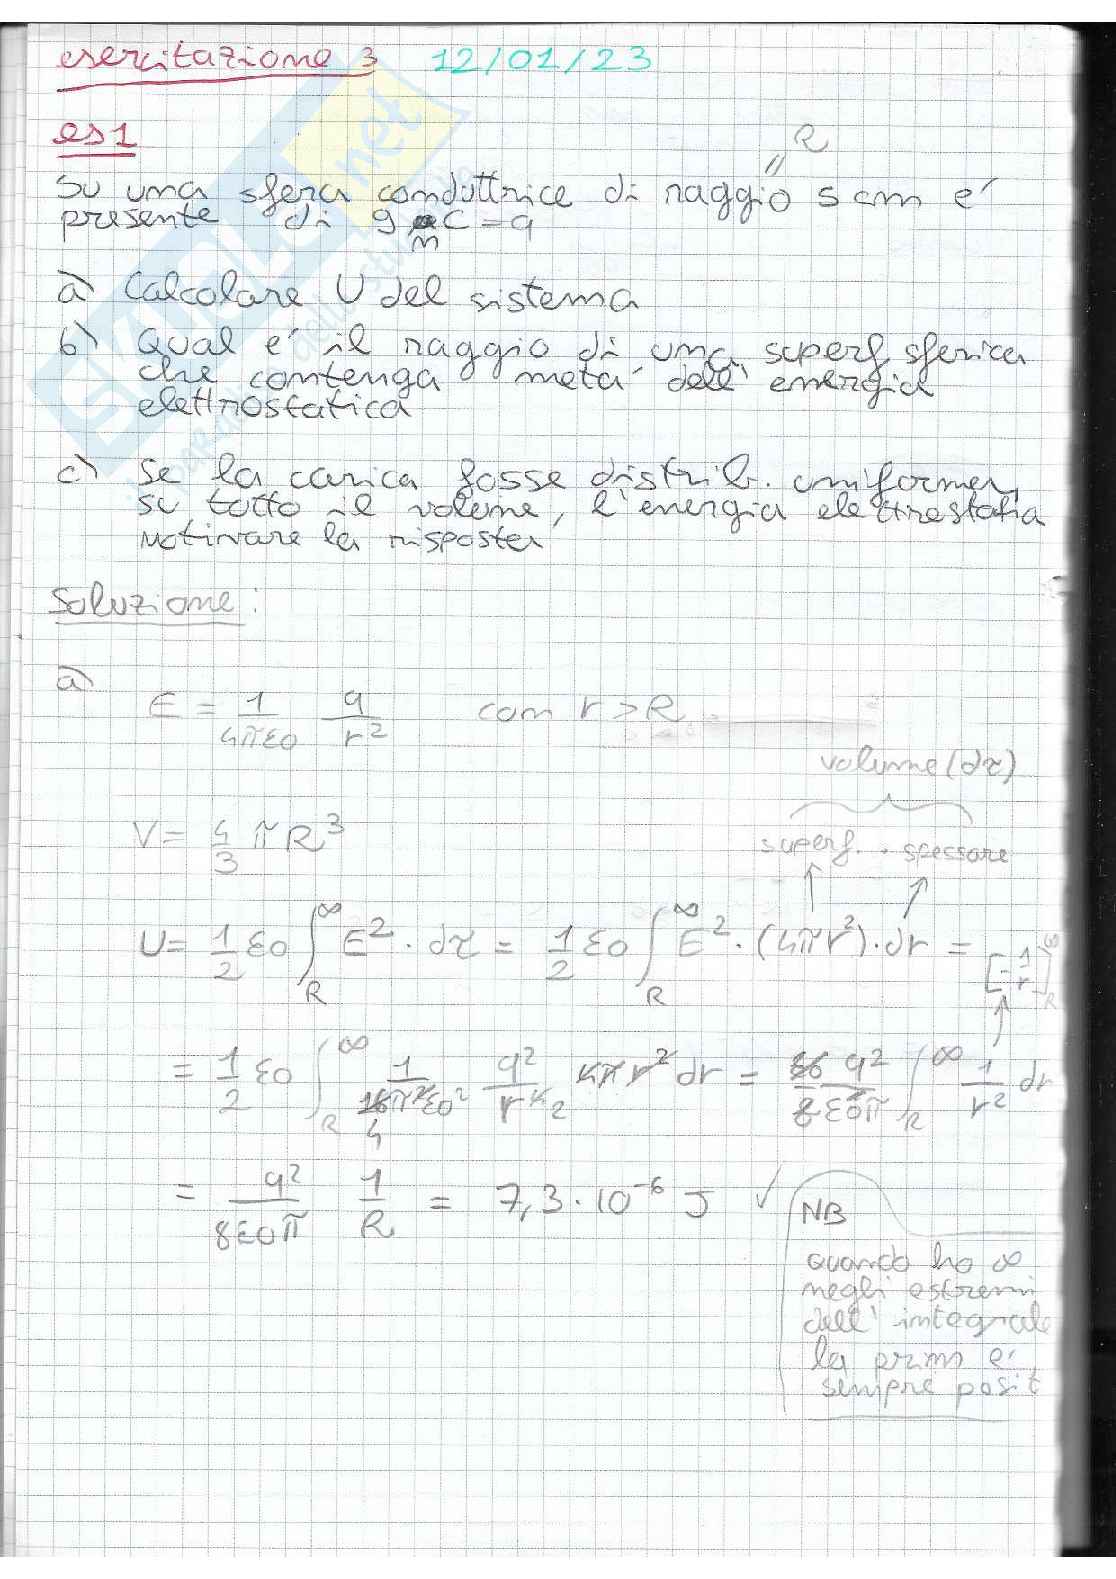 esercitazione 3 12/01/23
es1
R
Su una sfera conduttrice di raggio 5 cm é
presente di 9 nC = q
a) Calcolare U del sistema
b) Qual é il raggio di una superf. sferica
che contenga metá dell' energia
elettrostatica
c) Se la carica fosse distrib. uniformem,
su tutto il volume, l'energia
motivare la risposta
Soluzione:
a)
E = 1/4πε0 q/r² con r > R
volume (dτ)
superf. · spessore
V = 4/3 πR³
U = 1/2 ε0 ∫_R^∞ E² · dτ = 1/2 ε0 ∫_R^∞ E² · (4πr²) · dr = [-1/r]_R^∞
= 1/2 ε0 ∫_R^∞ 1/16π²ε0² q²/r⁴ 4πr² dr = q²/8ε0π ∫_R^∞ 1/r² dr
= q²/8ε0π 1/R = 7,3 · 10⁻⁶ J ✓
NB
quando ho ∞
negli estremi
dell' integrale
la prim é
sempre posit